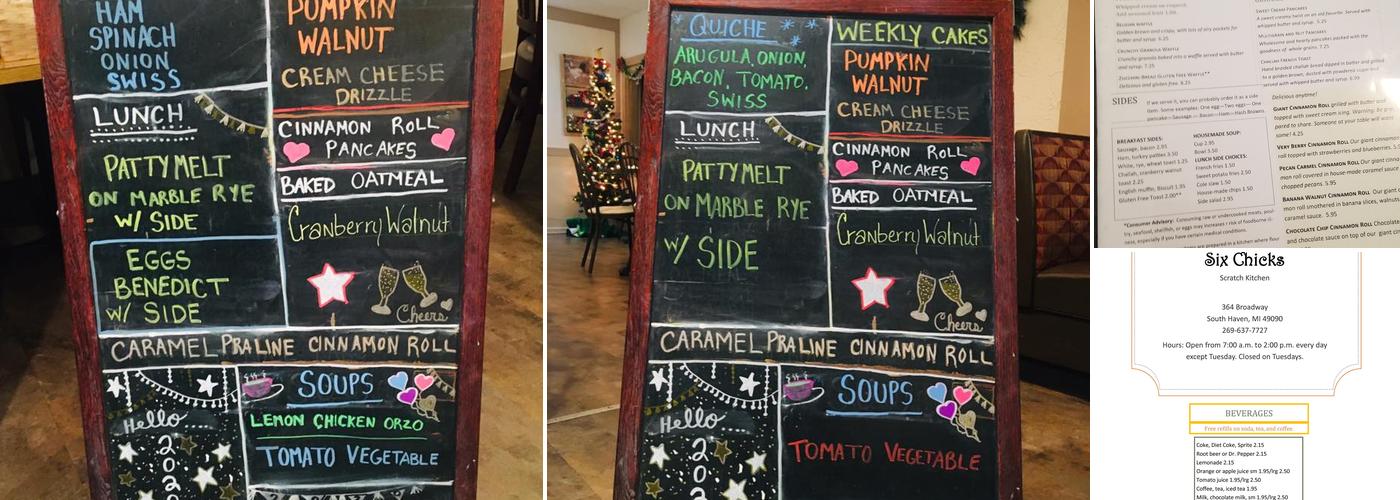 HAM
SPINACH
ONION
SWISS
LUNCH
PATTY MELT
ON MARBLE RYE
W/ SIDE
EGGS
BENEDICT
W/ SIDE
PUMPKIN
WALNUT
CREAM CHEESE
DRIZZLE
CINNAMON ROLL
PANCAKES
BAKED OATMEAL
Cranberry Walnut
Cheers
CARAMEL PRALINE CINNAMON ROLL
Hello
202
SOUPS
LEMON CHICKEN ORZO
TOMATO VEGETABLE
QUICHE
ARUGULA, ONION,
BACON, TOMATO,
SWISS
LUNCH
PATTY MELT
ON MARBLE RYE
W/ SIDE
WEEKLY CAKES
PUMPKIN
WALNUT
CREAM CHEESE
DRIZZLE
CINNAMON ROLL
PANCAKES
BAKED OATMEAL
Cranberry Walnut
Cheers
CARAMEL PRALINE CINNAMON ROLL
Hello
202
SOUPS
TOMATO VEGETABLE
Whipped cream on request.
Add seasonal fruit 1.00.
BELGIAN WAFFLE
Golden brown and crispy, with lots of airy pockets for
butter and syrup. 6.25
CRUNCHY GRANOLA WAFFLE
Crunchy granola baked into a waffle served with butter
and syrup. 7.25
ZUCCHINI BREAD GLUTEN FREE WAFFLE**
Delicious and gluten free. 8.25
SWEET CREAM PANCAKES
A sweet creamy twist on an old favorite. Served with
whipped butter and syrup. 5.25
MULTIGRAIN AND NUT PANCAKES
Wholesome and hearty pancakes packed with the
goodness of whole grains. 7.25
CHALLAH FRENCH TOAST
Hand braided challah bread dipped in batter and grilled
to a golden brown, dusted with powdered sugar and
served with whipped butter and syrup. 6.99
SIDES
If we serve it, you can probably order it as a side
item. Some examples: One egg—Two eggs—One
pancake—Sausage—Bacon—Ham—Hash Browns
BREAKFAST SIDES:
Sausage, bacon 2.95
Ham, turkey patties 3.50
White, rye, wheat toast 1.25
Challah, cranberry walnut
toast 2.25
English muffin, Biscuit 1.95
Gluten Free Toast 2.00**
HOUSEMADE SOUP:
Cup 2.95
Bowl 3.50
LUNCH SIDE CHOICES:
French fries 1.50
Sweet potato fries 2.50
Cole slaw 1.50
House-made chips 1.50
Side salad 2.95
*Consumer Advisory: Consuming raw or undercooked meats, poul-
try, seafood, shellfish, or eggs may increase risk of foodborne ill-
ness, especially if you have certain medical conditions.
are prepared in a kitchen where flour
Delicious anytime!
GIANT CINNAMON ROLL grilled with butter and
topped with sweet cream icing. Warning: Be pre-
pared to share. Someone at your table will want
some! 4.25
VERY BERRY CINNAMON ROLL Our giant cinna
roll topped with strawberries and blueberries. 5.
PECAN CARMEL CINNAMON ROLL Our giant cin
mon roll covered in house-made caramel sauce
chopped pecans. 5.95
BANANA WALNUT CINNAMON ROLL Our giant
mon roll smothered in banana slices, walnuts
caramel sauce. 5.95
CHOCOLATE CHIP CINNAMON ROLL Chocolate
and chocolate sauce on top of our giant cin
Six Chicks
Scratch Kitchen
364 Broadway
South Haven, MI 49090
269-637-7727
Hours: Open from 7:00 a.m. to 2:00 p.m. every day
except Tuesday. Closed on Tuesdays.
BEVERAGES
Free refills on soda, tea, and coffee
Coke, Diet Coke, Sprite 2.15
Root beer or Dr. Pepper 2.15
Lemonade 2.15
Orange or apple juice sm 1.95/lrg 2.50
Tomato juice 1.95/lrg 2.50
Coffee, tea, iced tea 1.95
Milk, chocolate milk, sm 1.95/lrg 2.50